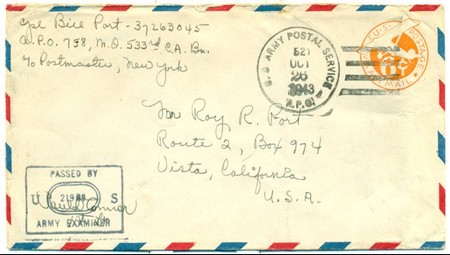 Cpl Bill Port - 37263045
A.P.O. 758, M.Q. 533rd C.A. Bn.
c/o Postmaster, New York
U.S. ARMY POSTAL SERVICE
521
OCT
26
1943
A.P.O.
U.S. POSTAGE
6¢
AIR MAIL
Mr Roy R. Port
Route 2, Box 974
Vista, California
U.S.A.
PASSED BY
U S
ARMY EXAMINER